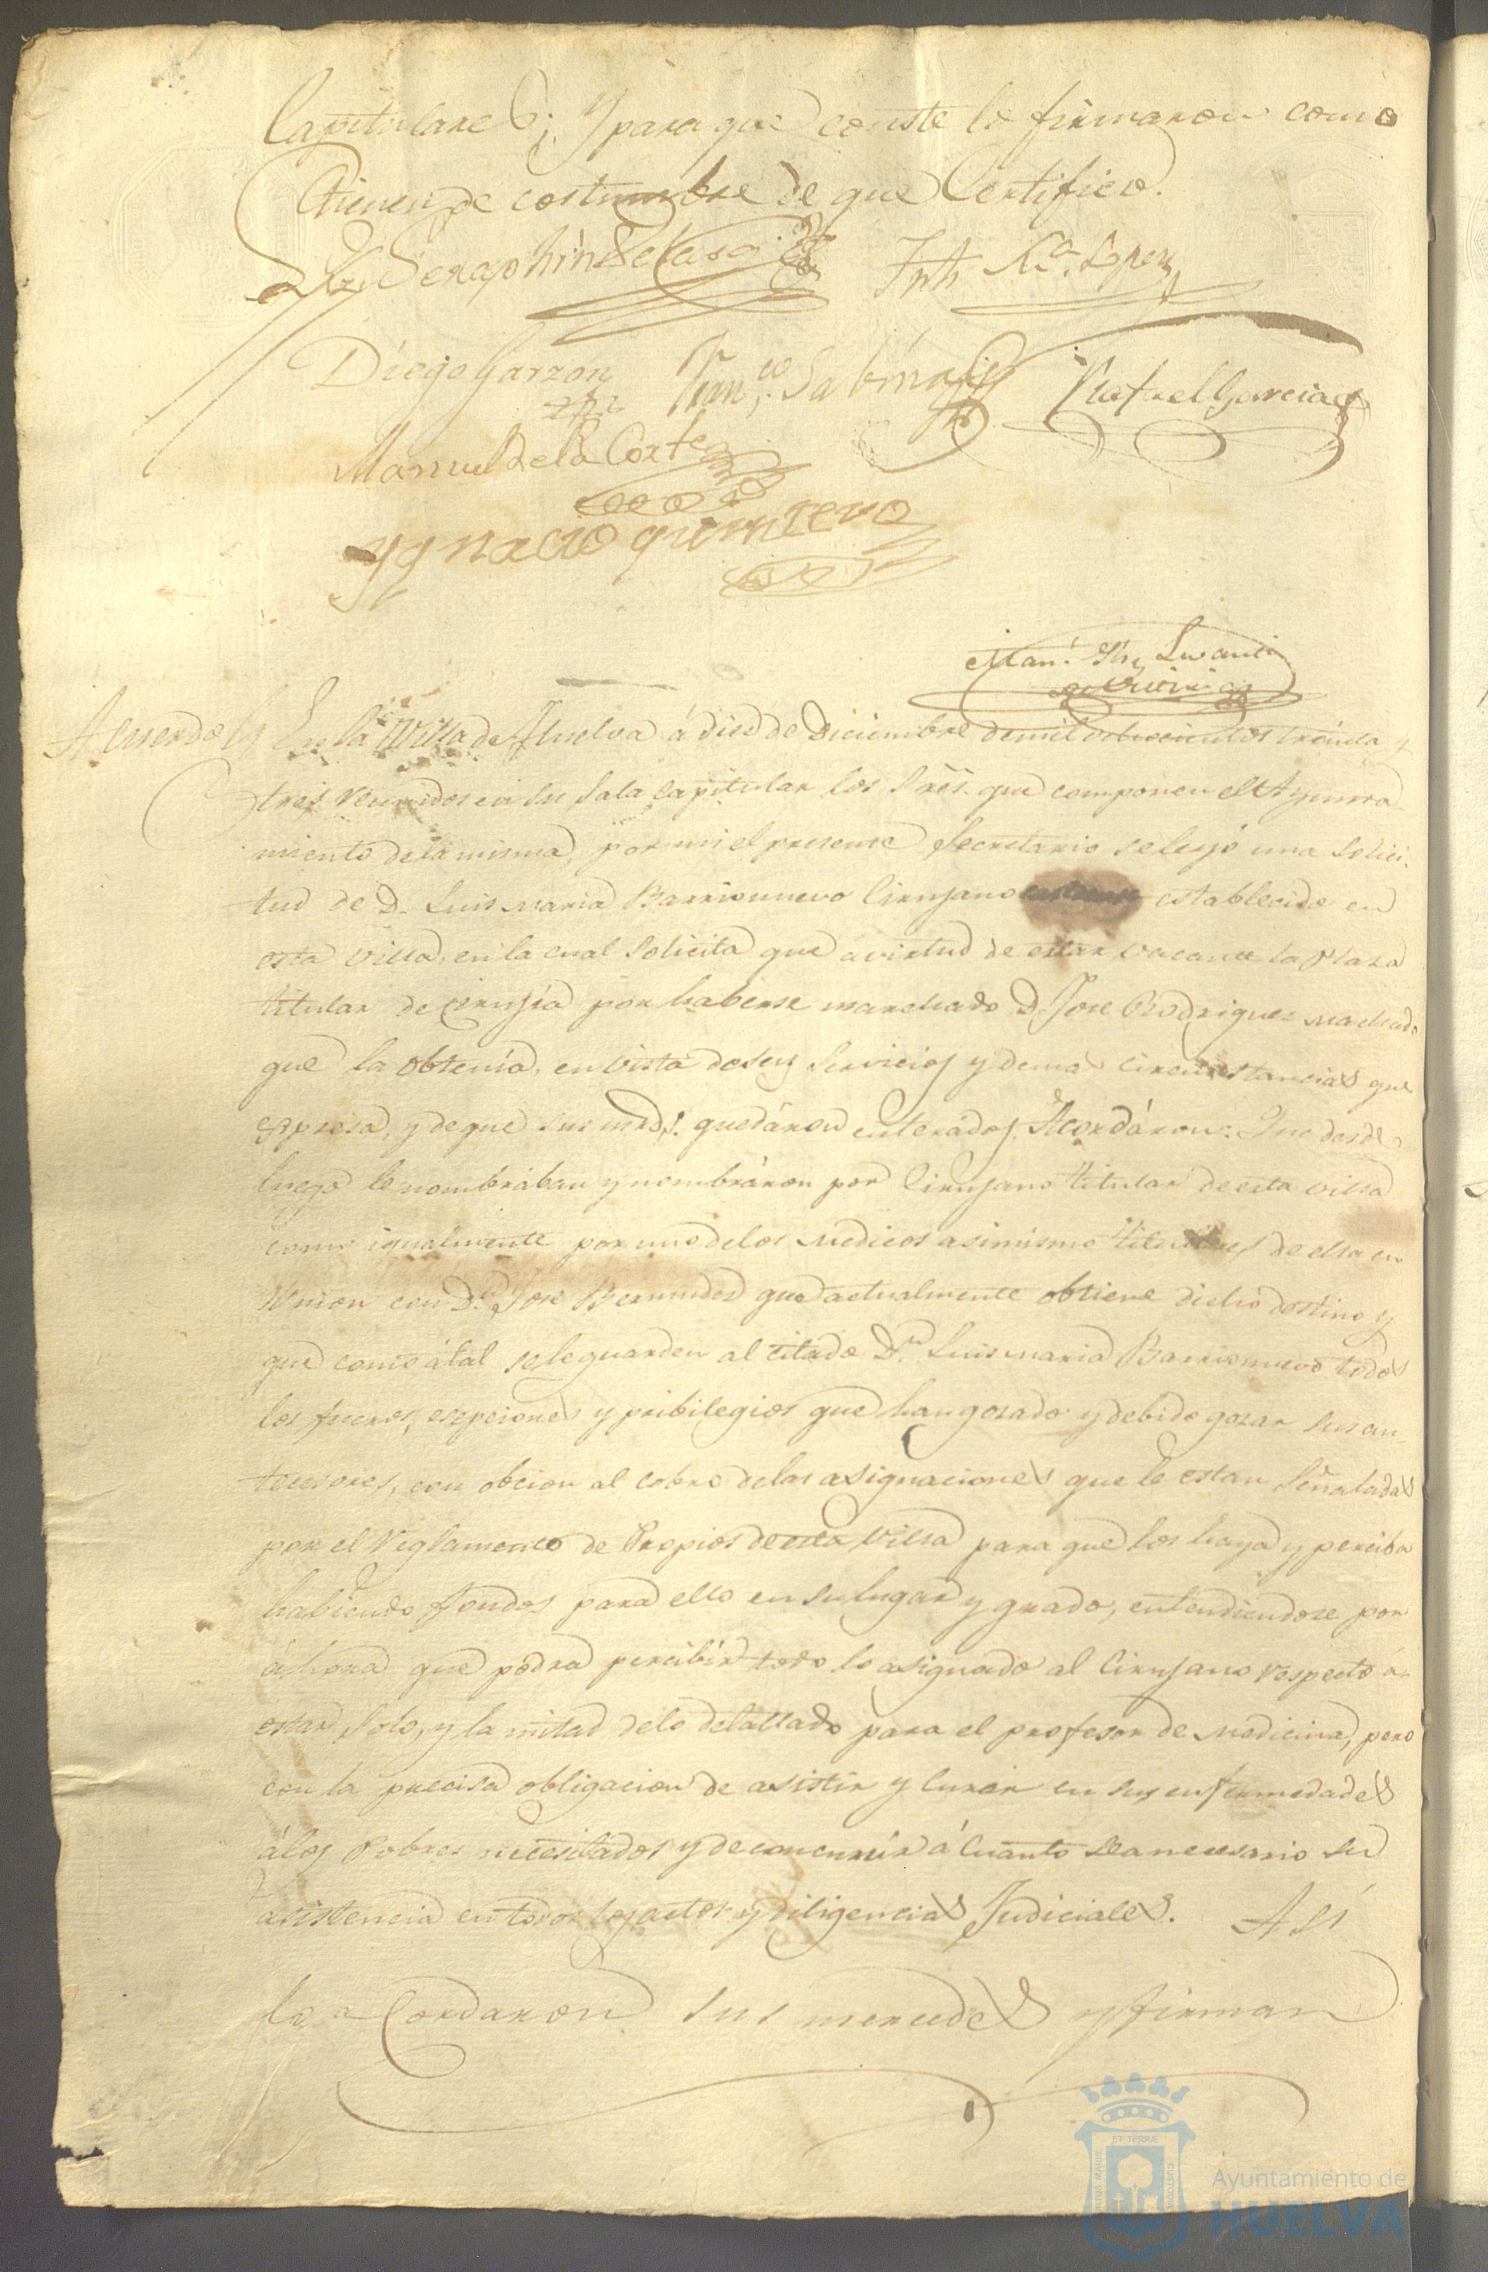 Capitulares; Y para que conste lo firmaron como
tienen de costumbre de que Certifico.
Seraphin de
Lopez
Diego Garzon Fran.co Rafael Garcia
Manuel de la Corte
Ygnacio quintero
Man.l
Acuerdo En la Villa de Huelva á diez de Diciembre de mil ochocientos treinta y
tres reunidos en su Sala capitular los Sres. que componen el Ayunta
miento de la misma, por mi el presente Secretario se leyó una Solici
tud de D. Luis Maria Barrionuevo Cirujano establecido en
esta Villa, en la cual solicita que a virtud de estar vacante la Plaza
titular de cirujia por haberse marchado D. Jose Rodriguez Machado
que la obtenia, en vista de sus servicios y demas circunstancias que
espresa, y de que sus mrds. quedáron enterados. Acordáron: Que desde
luego le nombraban y nombráron por Cirujano titular de esta villa
como igualmente por uno de los Medicos asimismo titulares de ella en
union con D.n Jose Bermudez que actualmente obtiene dicho destino y
que como á tal se le guarden al citado D.n Luis Maria Barrionuevo todos
los fueros, esepciones y pribilegios que han gozado y debido gozar sus an
tecesores, con obcion al cobro de las asignaciones que le estan señaladas
por el Reglamento de Propios de esta Villa para que los haya y perciba
habiendo fondos para ello en su lugar y grado, entendiendose por
áhora que podra percibir todo lo asignado al Cirujano respecto á
estar solo, y la mitad de lo detallado para el profesor de Medicina, pero
con la precisa obligacion de asistir y curar en sus enfermedades
á los Pobres necesitados y de concurrir á cuanto sea necesario su
asistencia en todos los actos y diligencias Judiciales. Asi
lo a Cordaron sus mercedes y firman
ET TERRÆ
CUSTODIA
Ayuntamiento de
HUELVA